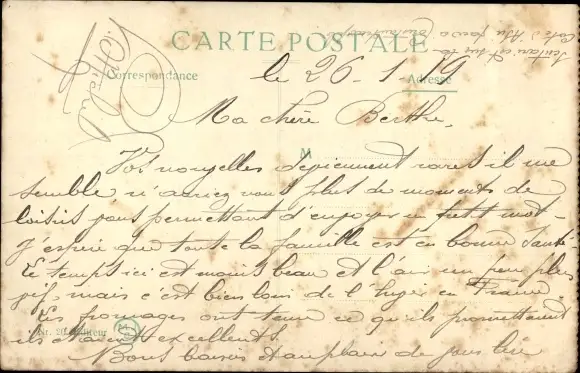 CARTE POSTALE
Correspondance
Adresse
le 26-1-19
Ma chère Berthe,
M
Vos nouvelles deviennent rares il me
semble n'auriez vous plus de moments de
loisirs vous permettant d'envoyer un petit mot-
J'espère que toute la famille est en bonne santé
Le temps ici est moins beau et l'air un peu plus
vif, mais c'est bien loin de l'hiver en France.
Les fromages ont tenu ce qu'ils promettaient
ils étaient excellents.
Bons baisers et au plaisir de vous lire
Editeur